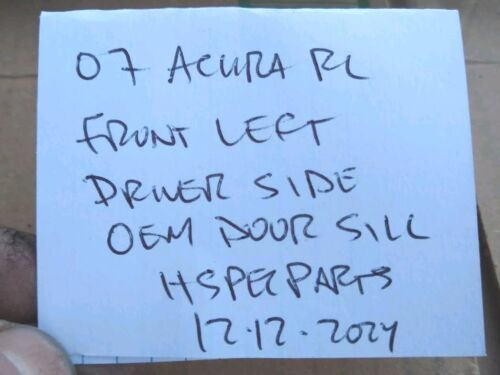 07 ACURA RL
FRONT LEFT
DRIVER SIDE
OEM DOOR SILL
HSPECPARTS
12.12.2024